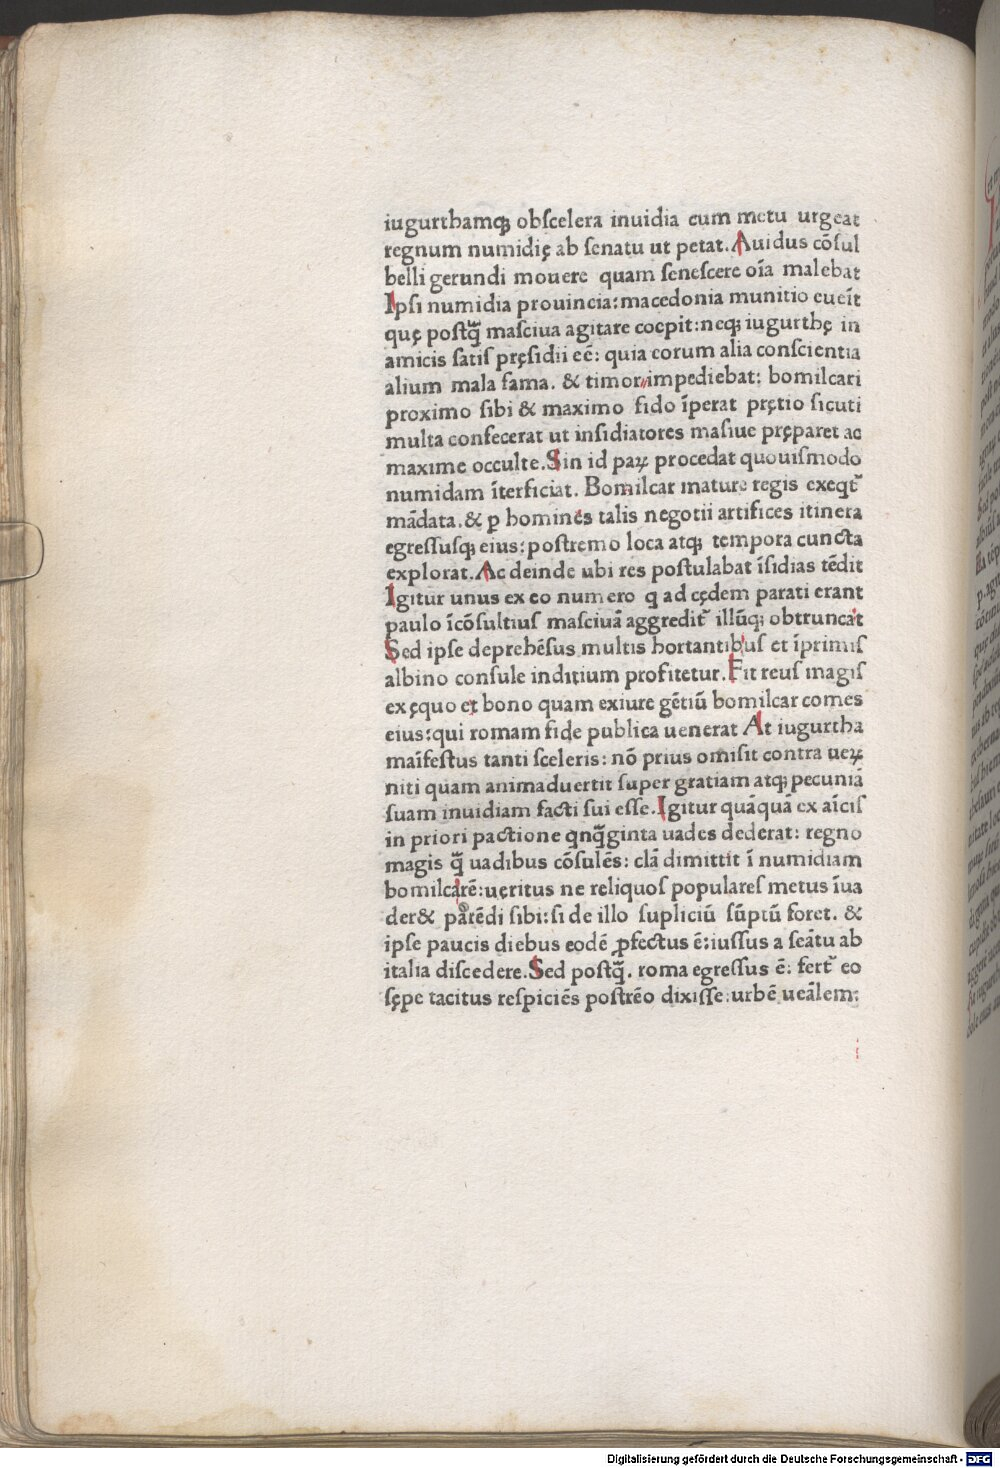 iugurthamꝙ obſcelera inuidia cum metu urgeat
regnum numidię ab ſenatu ut petat. Auidus cōſul
belli gerundi mouere quam ſeneſcere oīa malebat
Ipſi numidia prouincia: macedonia munitio eueīt
quę poſtꝗ̄ maſciua agitare coepit: neqꝫ iugurthę in
amicis ſatiſ pręſidii eē: quia corum alia conſcientia
alium mala fama. & timor impediebat: bomilcari
proximo ſibi & maximo fido īperat prętio ſicuti
multa confecerat ut inſidiatores maſiue pręparet ac
maxime occulte. Sin id paꝝ procedat quouiſmodo
numidam īterficiat. Bomilcar mature regis exeqt᷑
mādata. & ꝑ homines talis negotii artifices itinera
egreſſuſqꝫ eius: poſtremo loca atqꝫ tempora cuncta
explorat. Ac deinde ubi res poſtulabat īſidias tēdit
Igitur unus ex eo numero q ad cędem parati erant
paulo īcōſultiuſ maſciuā aggredit᷑ illūqꝫ obtruncat
Sed ipſe deprehēſus multis hortantibus et īprimiſ
albino conſule inditium profitetur. Fit reuſ magiſ
ex ęquo et bono quam exiure gētiū bomilcar comes
eius: qui romam fide publica uenerat At iugurtha
maīfeſtus tanti ſceleris: nō prius omiſit contra ueꝝ
niti quam animaduertit ſuper gratiam atqꝫ pecuniā
ſuam inuidiam facti ſui eſſe. Igitur quāquā ex aīciſ
in priori pactione qnꝗ̄ginta uades dederat: regno
magis ꝗ̄ uadibus cōſulēs: clā dimittit ī numidiam
bomilcarē: ueritus ne reliquoſ populareſ metus īua
der& parēdi ſibi: ſi de illo ſupliciū ſūptū foret. &
ipſe paucis diebus eodē ꝓfectus ē: iuſſus a ſeātu ab
italia diſcedere. Sed poſtꝗ̄. roma egreſſus ē: fert᷑ eo
ſępe tacitus reſpiciēs poſtrēo dixiſſe: urbē ueālem:
Digitalisierung gefördert durch die Deutsche Forschungsgemeinschaft - DFG